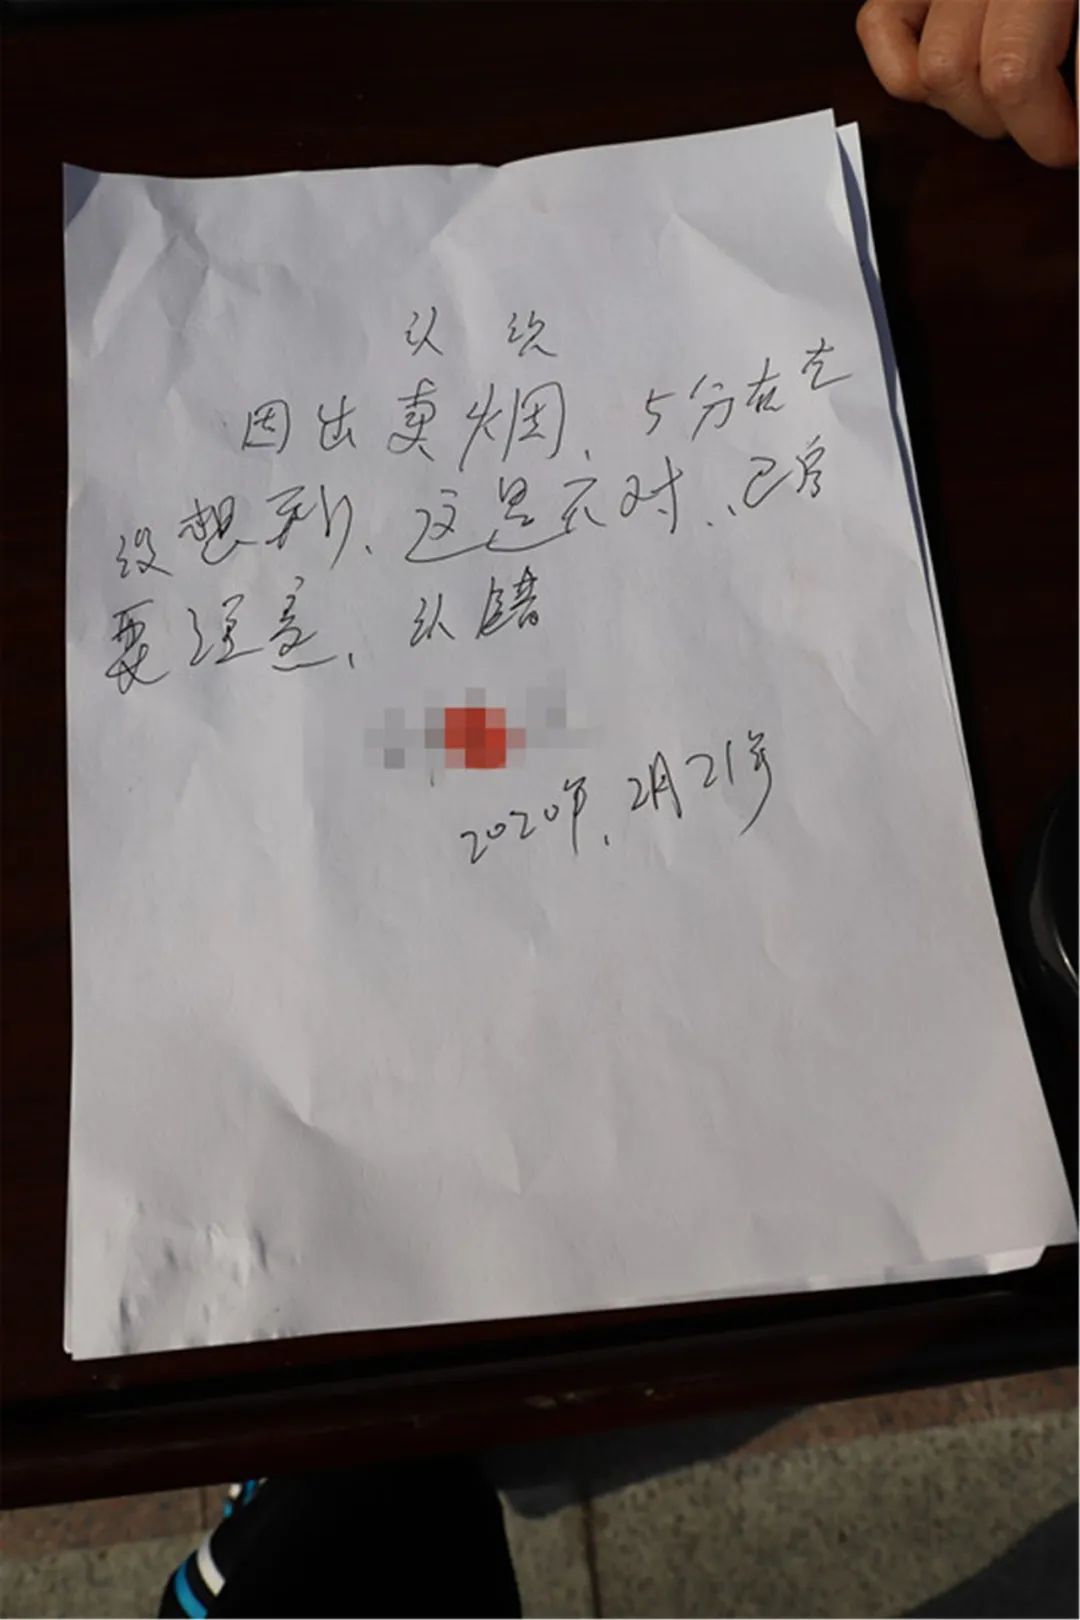 认识
因出卖烟、5分左右
没想到、这是不对、已后
要注意、认错
2020年、2月21号